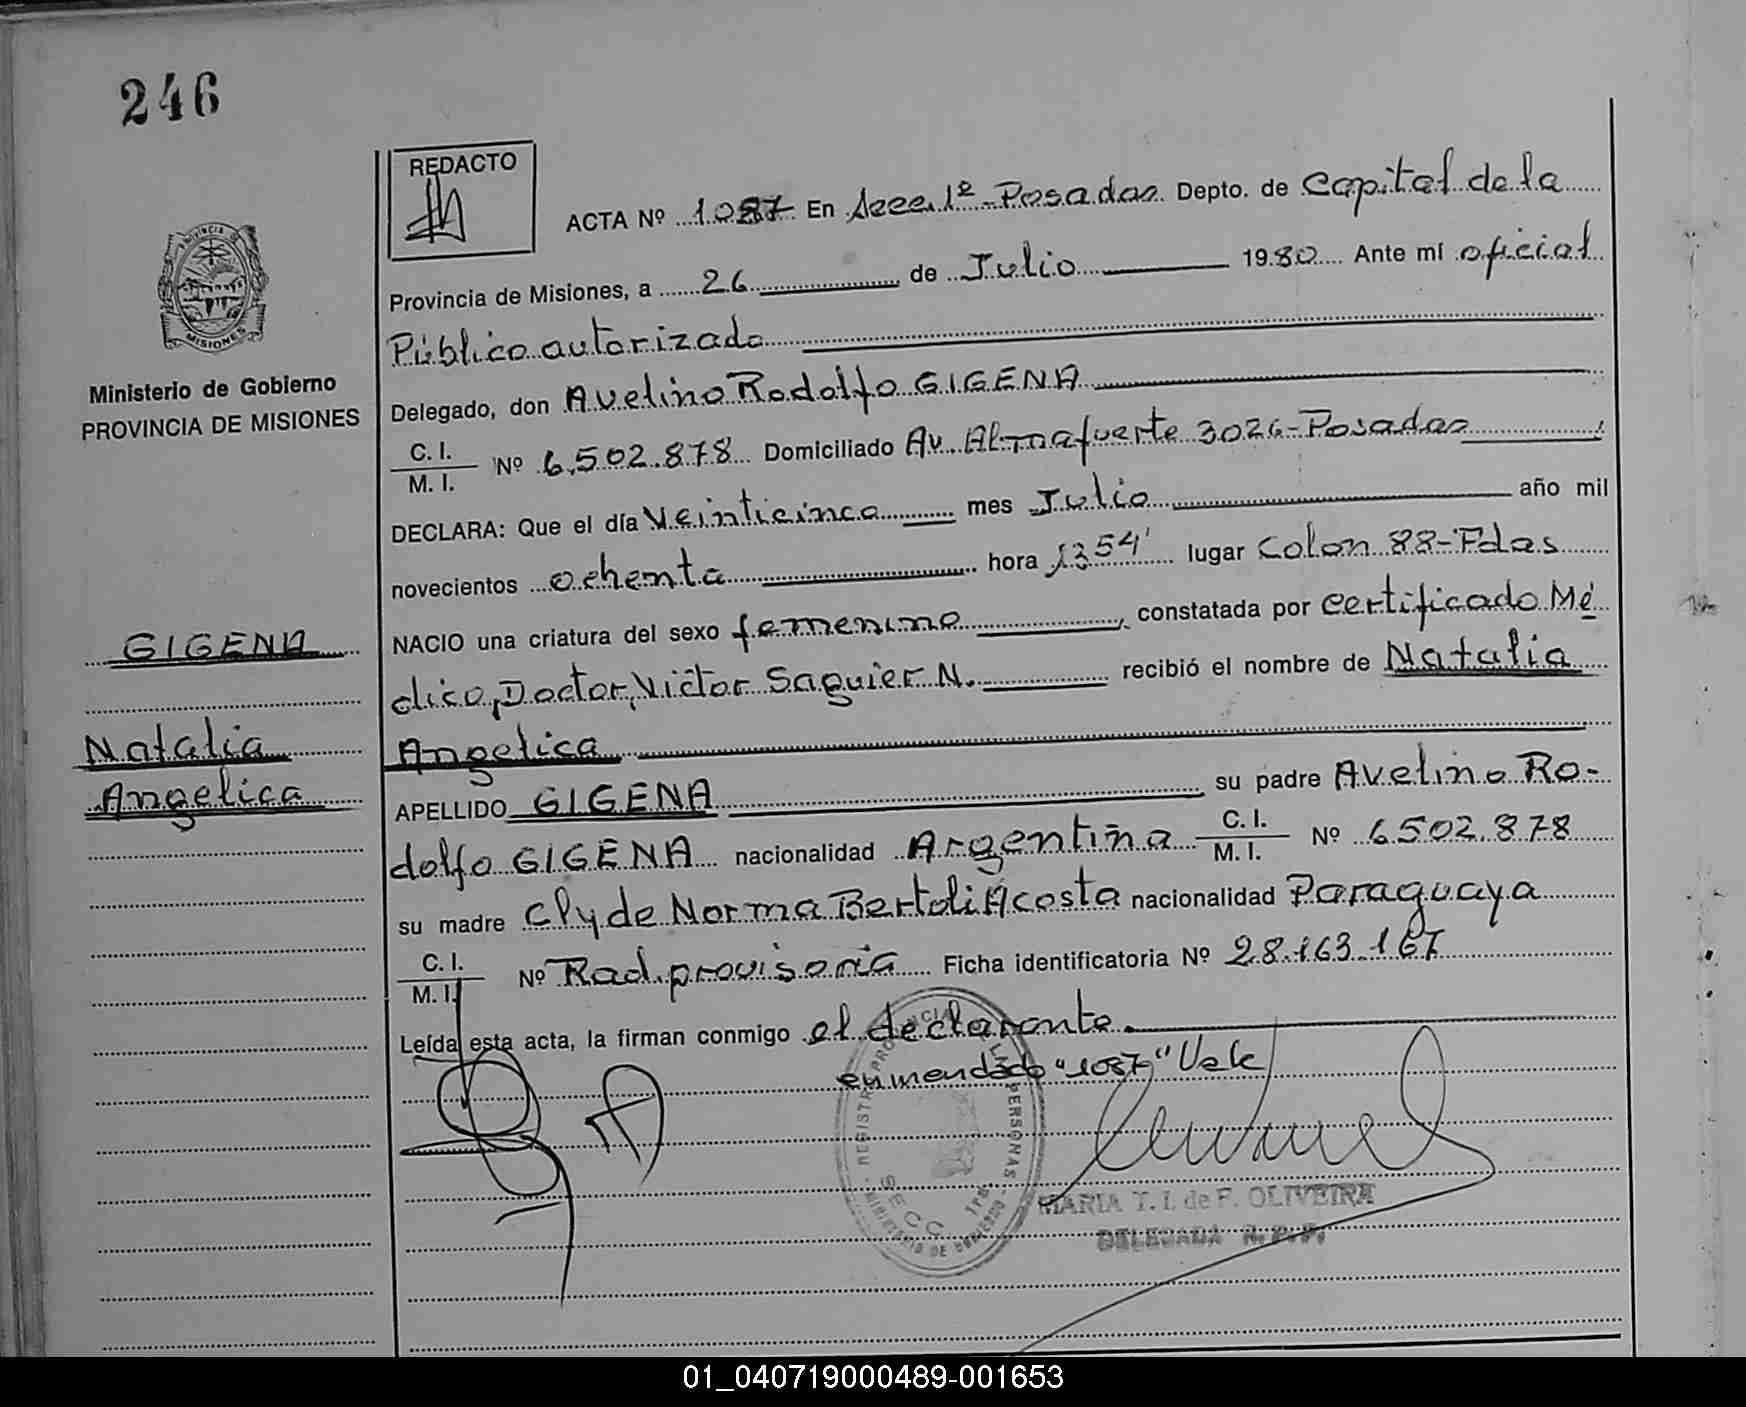 246
REDACTO
ACTA Nº 1087 En Secc. 1º - Posadas Depto. de Capital de la
Provincia de Misiones, a 26 de Julio 1980 Ante mí oficial
Público autorizado
Delegado, don Avelino Rodolfo GIGENA
C. I.
M. I. Nº 6.502.878 Domiciliado Av. Almafuerte 3026 - Posadas
DECLARA: Que el día Veinticinco mes Julio año mil
novecientos ochenta hora 13 54' lugar Colon 88 - Pdas
NACIO una criatura del sexo femenino, constatada por certificado Mé
dico, Doctor, Victor Saguier N. recibió el nombre de Natalia
Angelica
APELLIDO GIGENA su padre Avelino Ro-
dolfo GIGENA nacionalidad Argentina C. I.
M. I. Nº 6.502.878
su madre Clyde Norma Bertoli Acosta nacionalidad Paraguaya
C. I.
M. I. Nº Rad. provisoria Ficha identificatoria Nº 28.163.167
Leída esta acta, la firman conmigo el declarante.
enmendado "1087" Vale
PROVINCIA DE MISIONES
Ministerio de Gobierno
PROVINCIA DE MISIONES
GIGENA
Natalia
Angelica
REGISTRO PROVINCIAL LAS PERSONAS
SECC. 1ra.
MINISTERIO DE GOBIERNO
MARIA T. I. de F. OLIVEIRA
DELEGADA R. P. P.
01_040719000489-001653